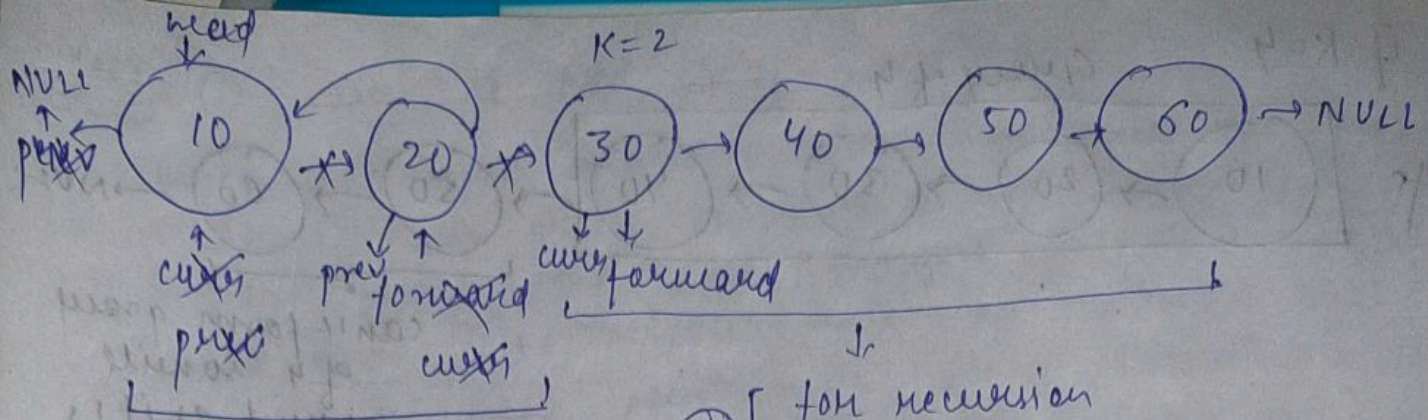 head
K=2
NULL
prev
10
20
30
40
50
60
NULL
curr
prev
forward
curr
forward
prev
curr
for recursion